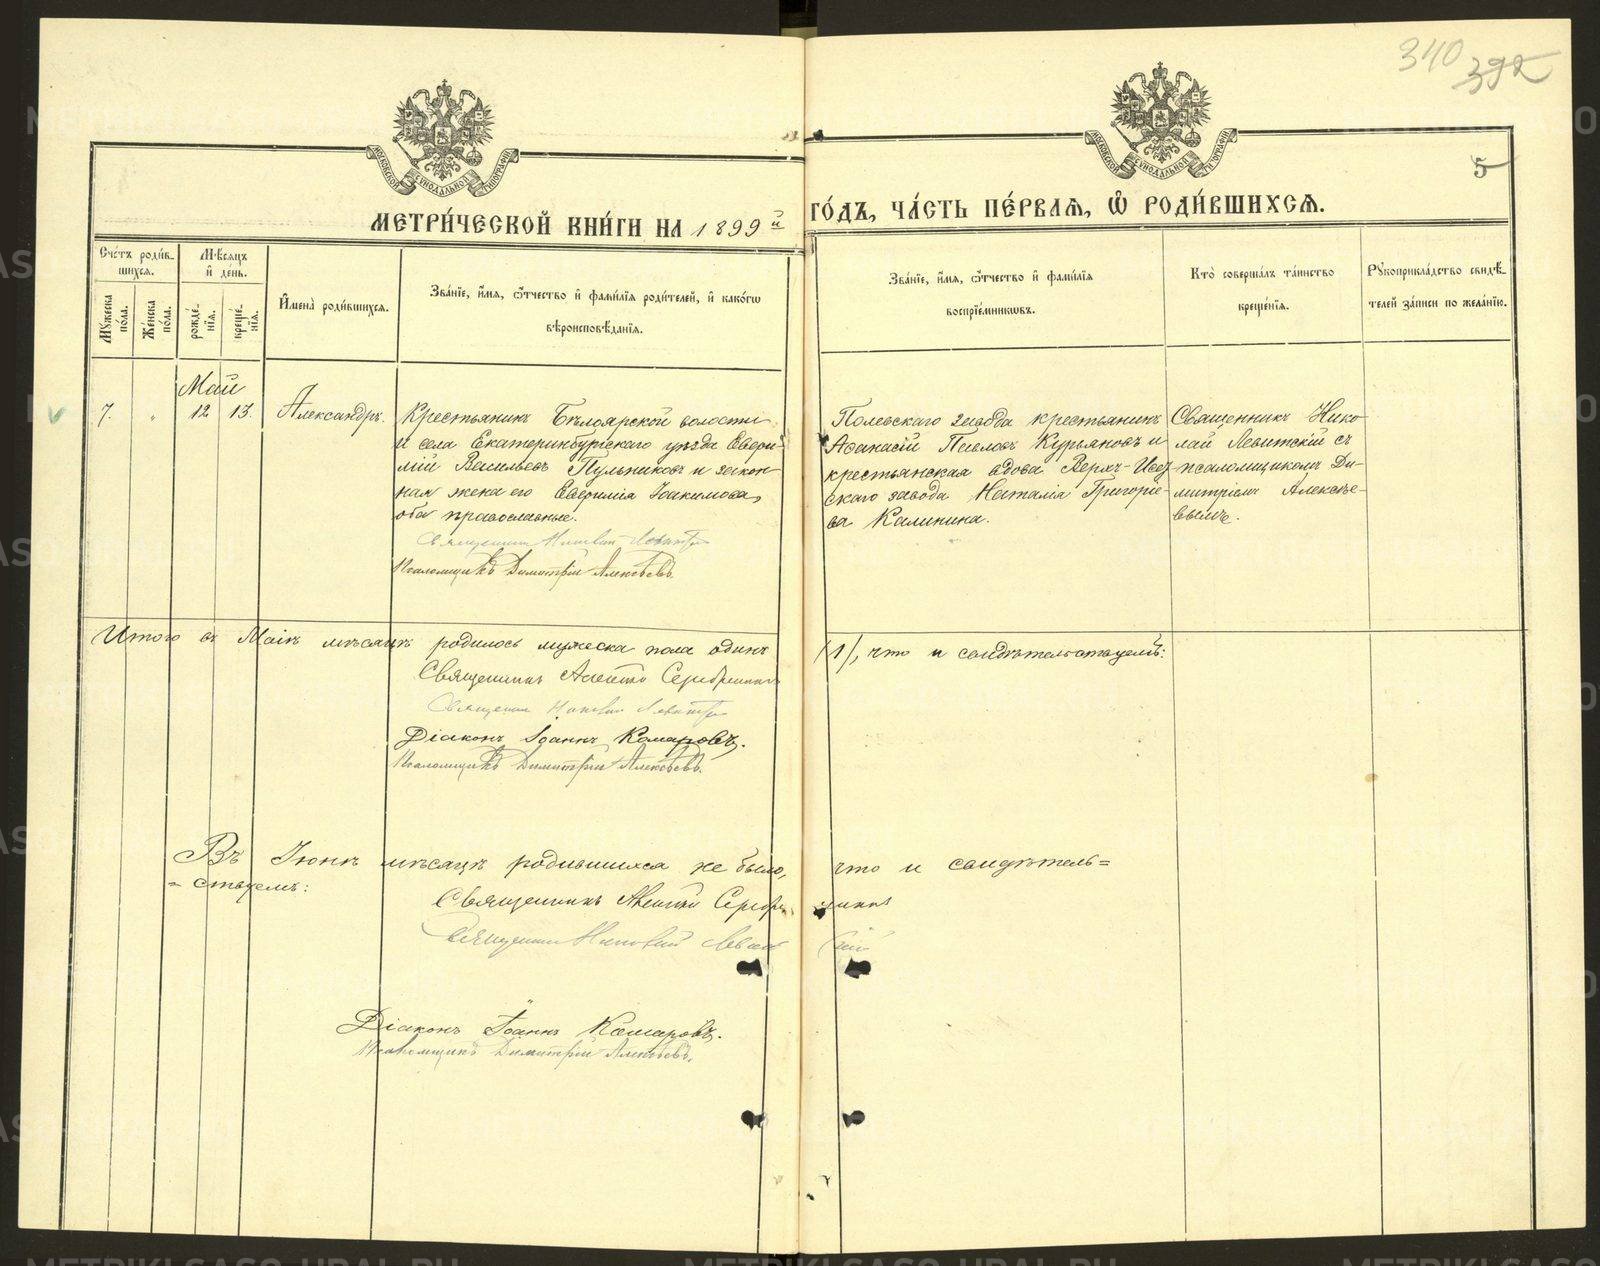 340 392
5
МОСКОВСКОЙ СѴНОДАЛЬНОЙ ТИПОГРАФІИ
МОСКОВСКОЙ СѴНОДАЛЬНОЙ ТИПОГРАФІИ
МЕТРИ́ЧЕСКОЙ КНИ́ГИ НА 1899й ГО́ДЪ, ЧА́СТЬ ПЕ́РВАЯ, Ѡ҆ РОДИ́ВШИХСЯ.
Сче́тъ роди́в-
шихся.
Му́жеска
по́ла.
Же́нска
по́ла.
Мѣ́сяцъ
и҆ де́нь.
рожде́-
нїя.
креще́-
нїя.
И҆мена̀ роди́вшихся.
Зва́нїе, и҆́мя, ѻ҆́тчество и҆ фами́лїя роди́телей, и҆ како́гѡ
вѣроисповѣ́данїя.
Зва́нїе, и҆́мя, ѻ҆́тчество и҆ фами́лїя
воспрїе́мникѡвъ.
Кто̀ соверша́лъ та́инство
креще́нїя.
Рꙋкоприкла́дство свидѣ́-
телей за́писи по жела́нїю.
Май
7. " 12 13. Александръ.
Крестьянинъ Бѣлоярской волости
и села Екатеринбургскаго уѣзда Евфи-
мій Васильевъ Пульниковъ и закон-
ная жена его Евфимія Іоакимова,
оба православные.
Священникъ Николай Левитскій
Псаломщикъ Димитрій Алексѣевъ.
Полевскаго завода крестьянинъ
Афанасій Павловъ Курьяновъ и
крестьянская вдова Верхъ-Исет-
скаго завода Наталія Григорье-
ва Калинина.
Священникъ Нико-
лай Левитскій съ
псаломщикомъ Ди-
митріемъ Алексѣе-
вымъ.
Итого въ Маѣ мѣсяцѣ родилось мужеска пола одинъ /1/, что и свидѣтельствуемъ:
Священникъ Серебренников
Священникъ Николай Левитскій
Діаконъ Іоаннъ Комаровъ.
Псаломщикъ Димитрій Алексѣевъ.
Въ Іюнѣ мѣсяцѣ родившихся не было, что и свидѣтель=
=ствуемъ:
Священникъ Серебренников
Священникъ Николай Левитскій
Діаконъ Іоаннъ Комаровъ.
Псаломщикъ Димитрій Алексѣевъ.